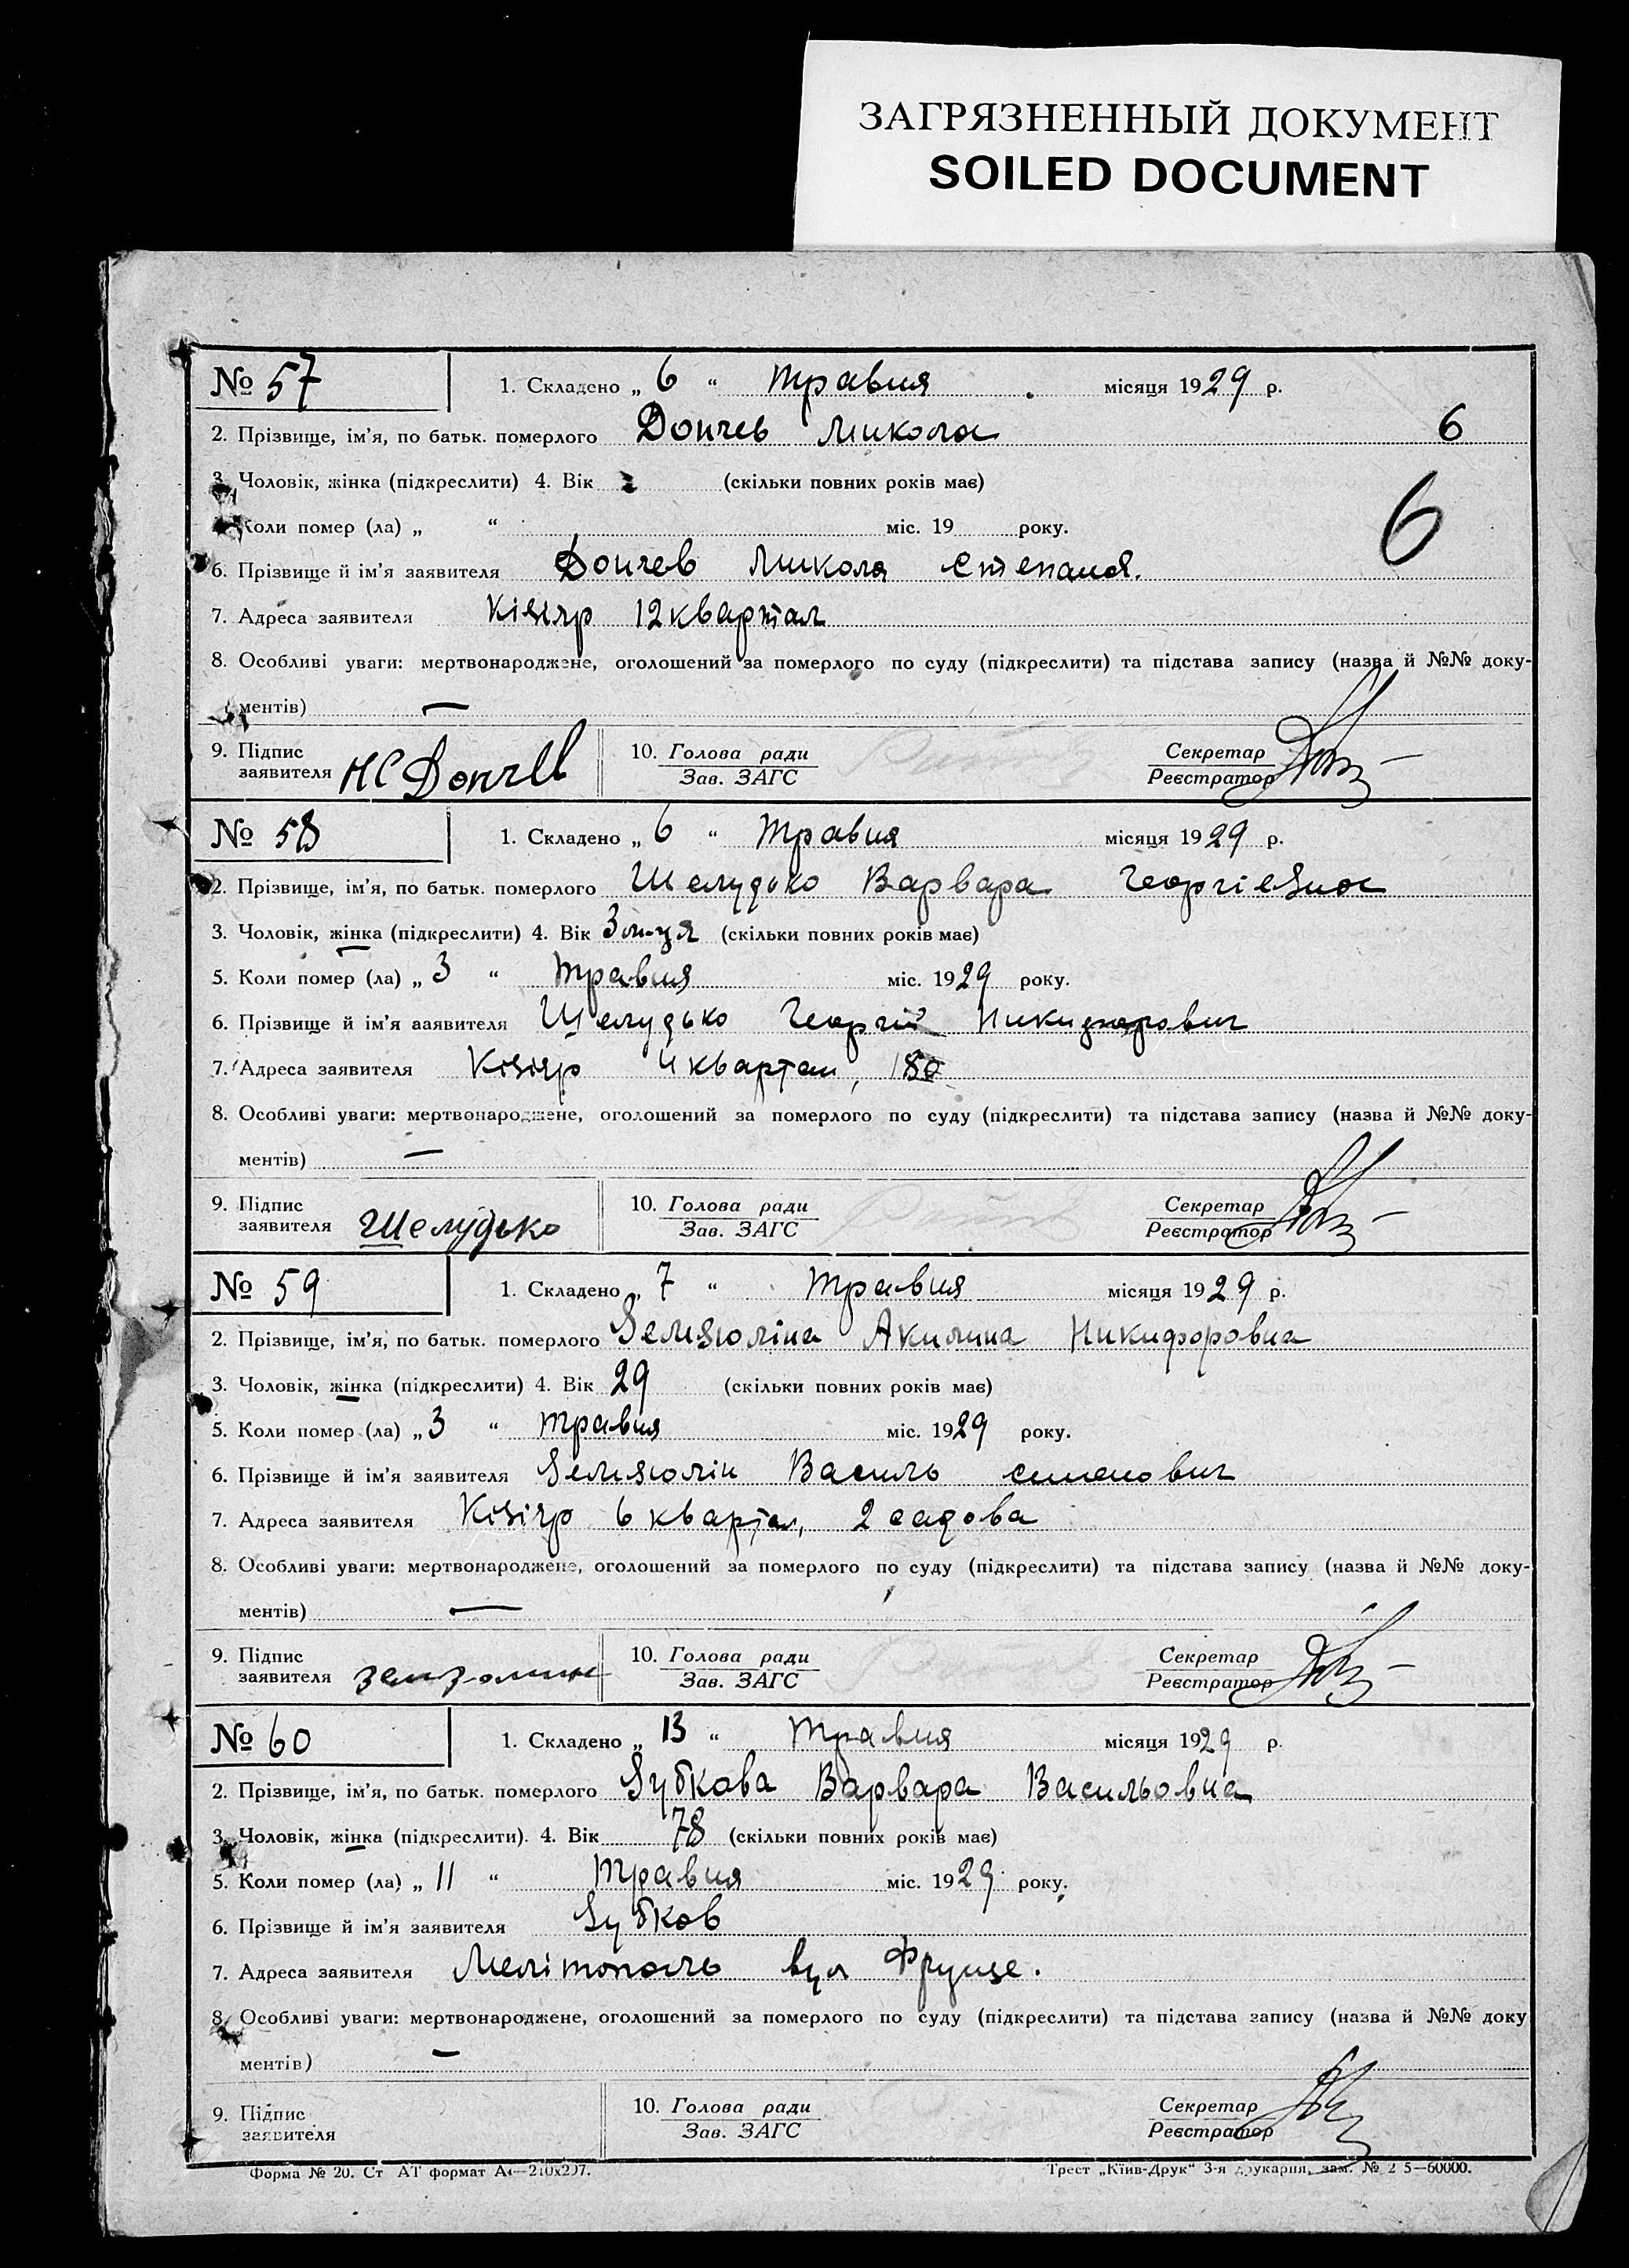 ЗАГРЯЗНЕННЫЙ ДОКУМЕНТ
SOILED DOCUMENT
№ 57 1. Складено „ 6 “ травня місяця 1929 р.
2. Прізвище, ім'я, по батьк. померлого Дончев Микола 6
3. Чоловік, жінка (підкреслити) 4. Вік (скільки повних років має)
6
Коли помер (ла) „ “ міс. 19 року.
6. Прізвище й ім'я заявителя Дончев Микола Степанов.
7. Адреса заявителя Кізіяр 12 квартал
8. Особливі уваги: мертвонароджене, оголошений за померлого по суду (підкреслити) та підстава запису (назва й №№ доку-
ментів) —
9. Підпис заявителя НС Дончев 10. Голова ради Зав. ЗАГС Секретар Реєстратор
№ 58 1. Складено „ 6 “ травня місяця 1929 р.
2. Прізвище, ім'я, по батьк. померлого Шелудько Варвара Георгієвна
3. Чоловік, жінка (підкреслити) 4. Вік 3 м-ця (скільки повних років має)
5. Коли помер (ла) „ 3 “ травня міс. 1929 року.
6. Прізвище й ім'я ааявителя Шелудько Георгій Никифорович
7. Адреса заявителя Кізіяр 4 квартал, 180
8. Особливі уваги: мертвонароджене, оголошений за померлого по суду (підкреслити) та підстава запису (назва й №№ доку-
ментів) —
9. Підпис заявителя Шелудько 10. Голова ради Зав. ЗАГС Секретар Реєстратор
№ 59 1. Складено „ 7 “ травня місяця 1929 р.
2. Прізвище, ім'я, по батьк. померлого Земзюліна Акилина Никифоровна
3. Чоловік, жінка (підкреслити) 4. Вік 29 (скільки повних років має)
5. Коли помер (ла) „ 3 “ травня міс. 1929 року.
6. Прізвище й ім'я заявителя Земзюлін Василь Семенович
7. Адреса заявителя Кізіяр 6 квартал, 2 садова
8. Особливі уваги: мертвонароджене, оголошений за померлого по суду (підкреслити) та підстава запису (назва й №№ доку-
ментів) —
9. Підпис заявителя 10. Голова ради Зав. ЗАГС Секретар Реєстратор
№ 60 1. Складено „ 13 “ травня місяця 1929 р.
2. Прізвище, ім'я, по батьк. померлого Зубкова Варвара Васильовна
3. Чоловік, жінка (підкреслити). 4. Вік 78 (скільки повних років має)
5. Коли помер (ла) „ 11 “ травня міс. 1929 року.
6. Прізвище й ім'я заявителя Зубков
7. Адреса заявителя Мелітополь вул Фрунзе.
8. Особливі уваги: мертвонароджене, оголошений за померлого по суду (підкреслити) та підстава запису (назва й №№ доку
ментів) —
9. Підпис заявителя 10. Голова ради Зав. ЗАГС Секретар Реєстратор
Форма № 20. Ст АТ формат А4—210х297. Трест „Київ-Друк“ 3-я друкарня, зам. № 5—60000.